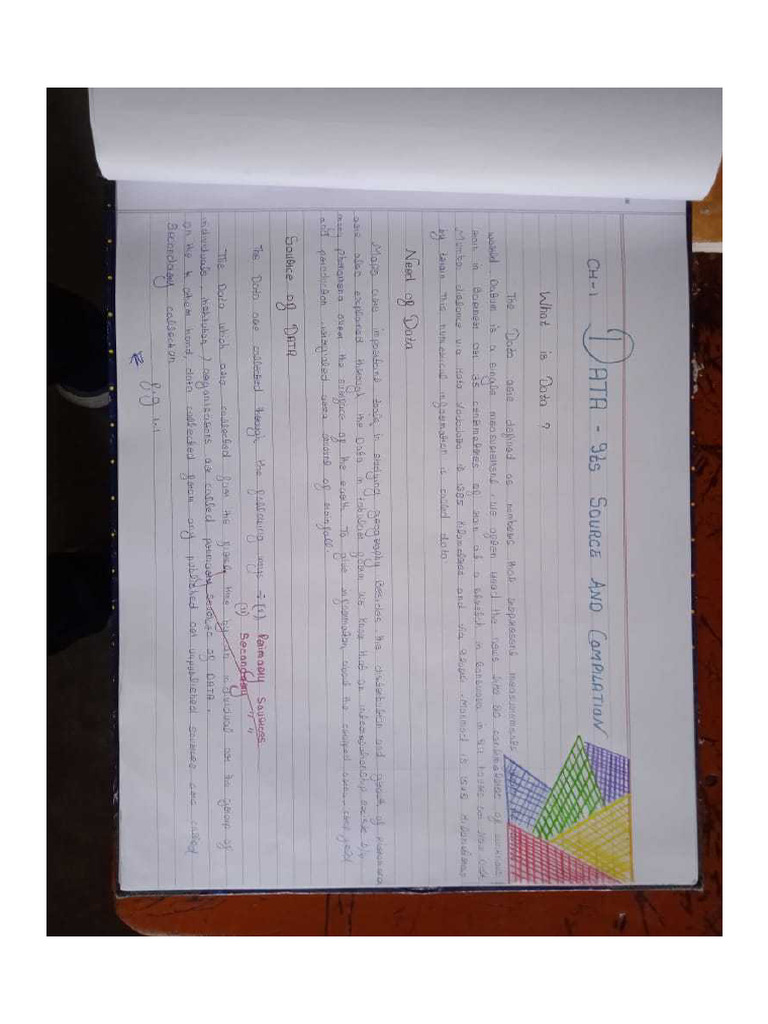 CH-1 DATA - Its SOURCE AND COMPILATION
What is Data ?
The Data are defined as numbers that represent measurements
world. Datum is a single measurement. We often read the news like 20 centimetres of continuous
rain in Banmer or 35 centimetres of rain at a stretch in Banswara in 24 hours or New Delhi
Mumbai distance via Kota Vadodara is 1385 kilometres and via Itarsi - Manmad is 1542 kilometres
by train. This numerical information is called data
Need of Data
Maps are important tools in studying geography Besides, the distribution and growth of phenomena
are also explained through the Data in tabular form. We know that an interrelationship exists b/w
many phenomena over the surface of the earth. To give information about the cropped area, crop yield
and production, irrigated area, amount of rainfall.
Source of DATA
The Data are collected through the following ways :- (1) Primary Sources
(2) Secondary " "
The Data which are collected for the first time by an individual or the group of
individuals, institution / organisations are called primary source of DATA.
On the other hand, data collected from any published or unpublished sources are called
Secondary collection.
fig 1.1